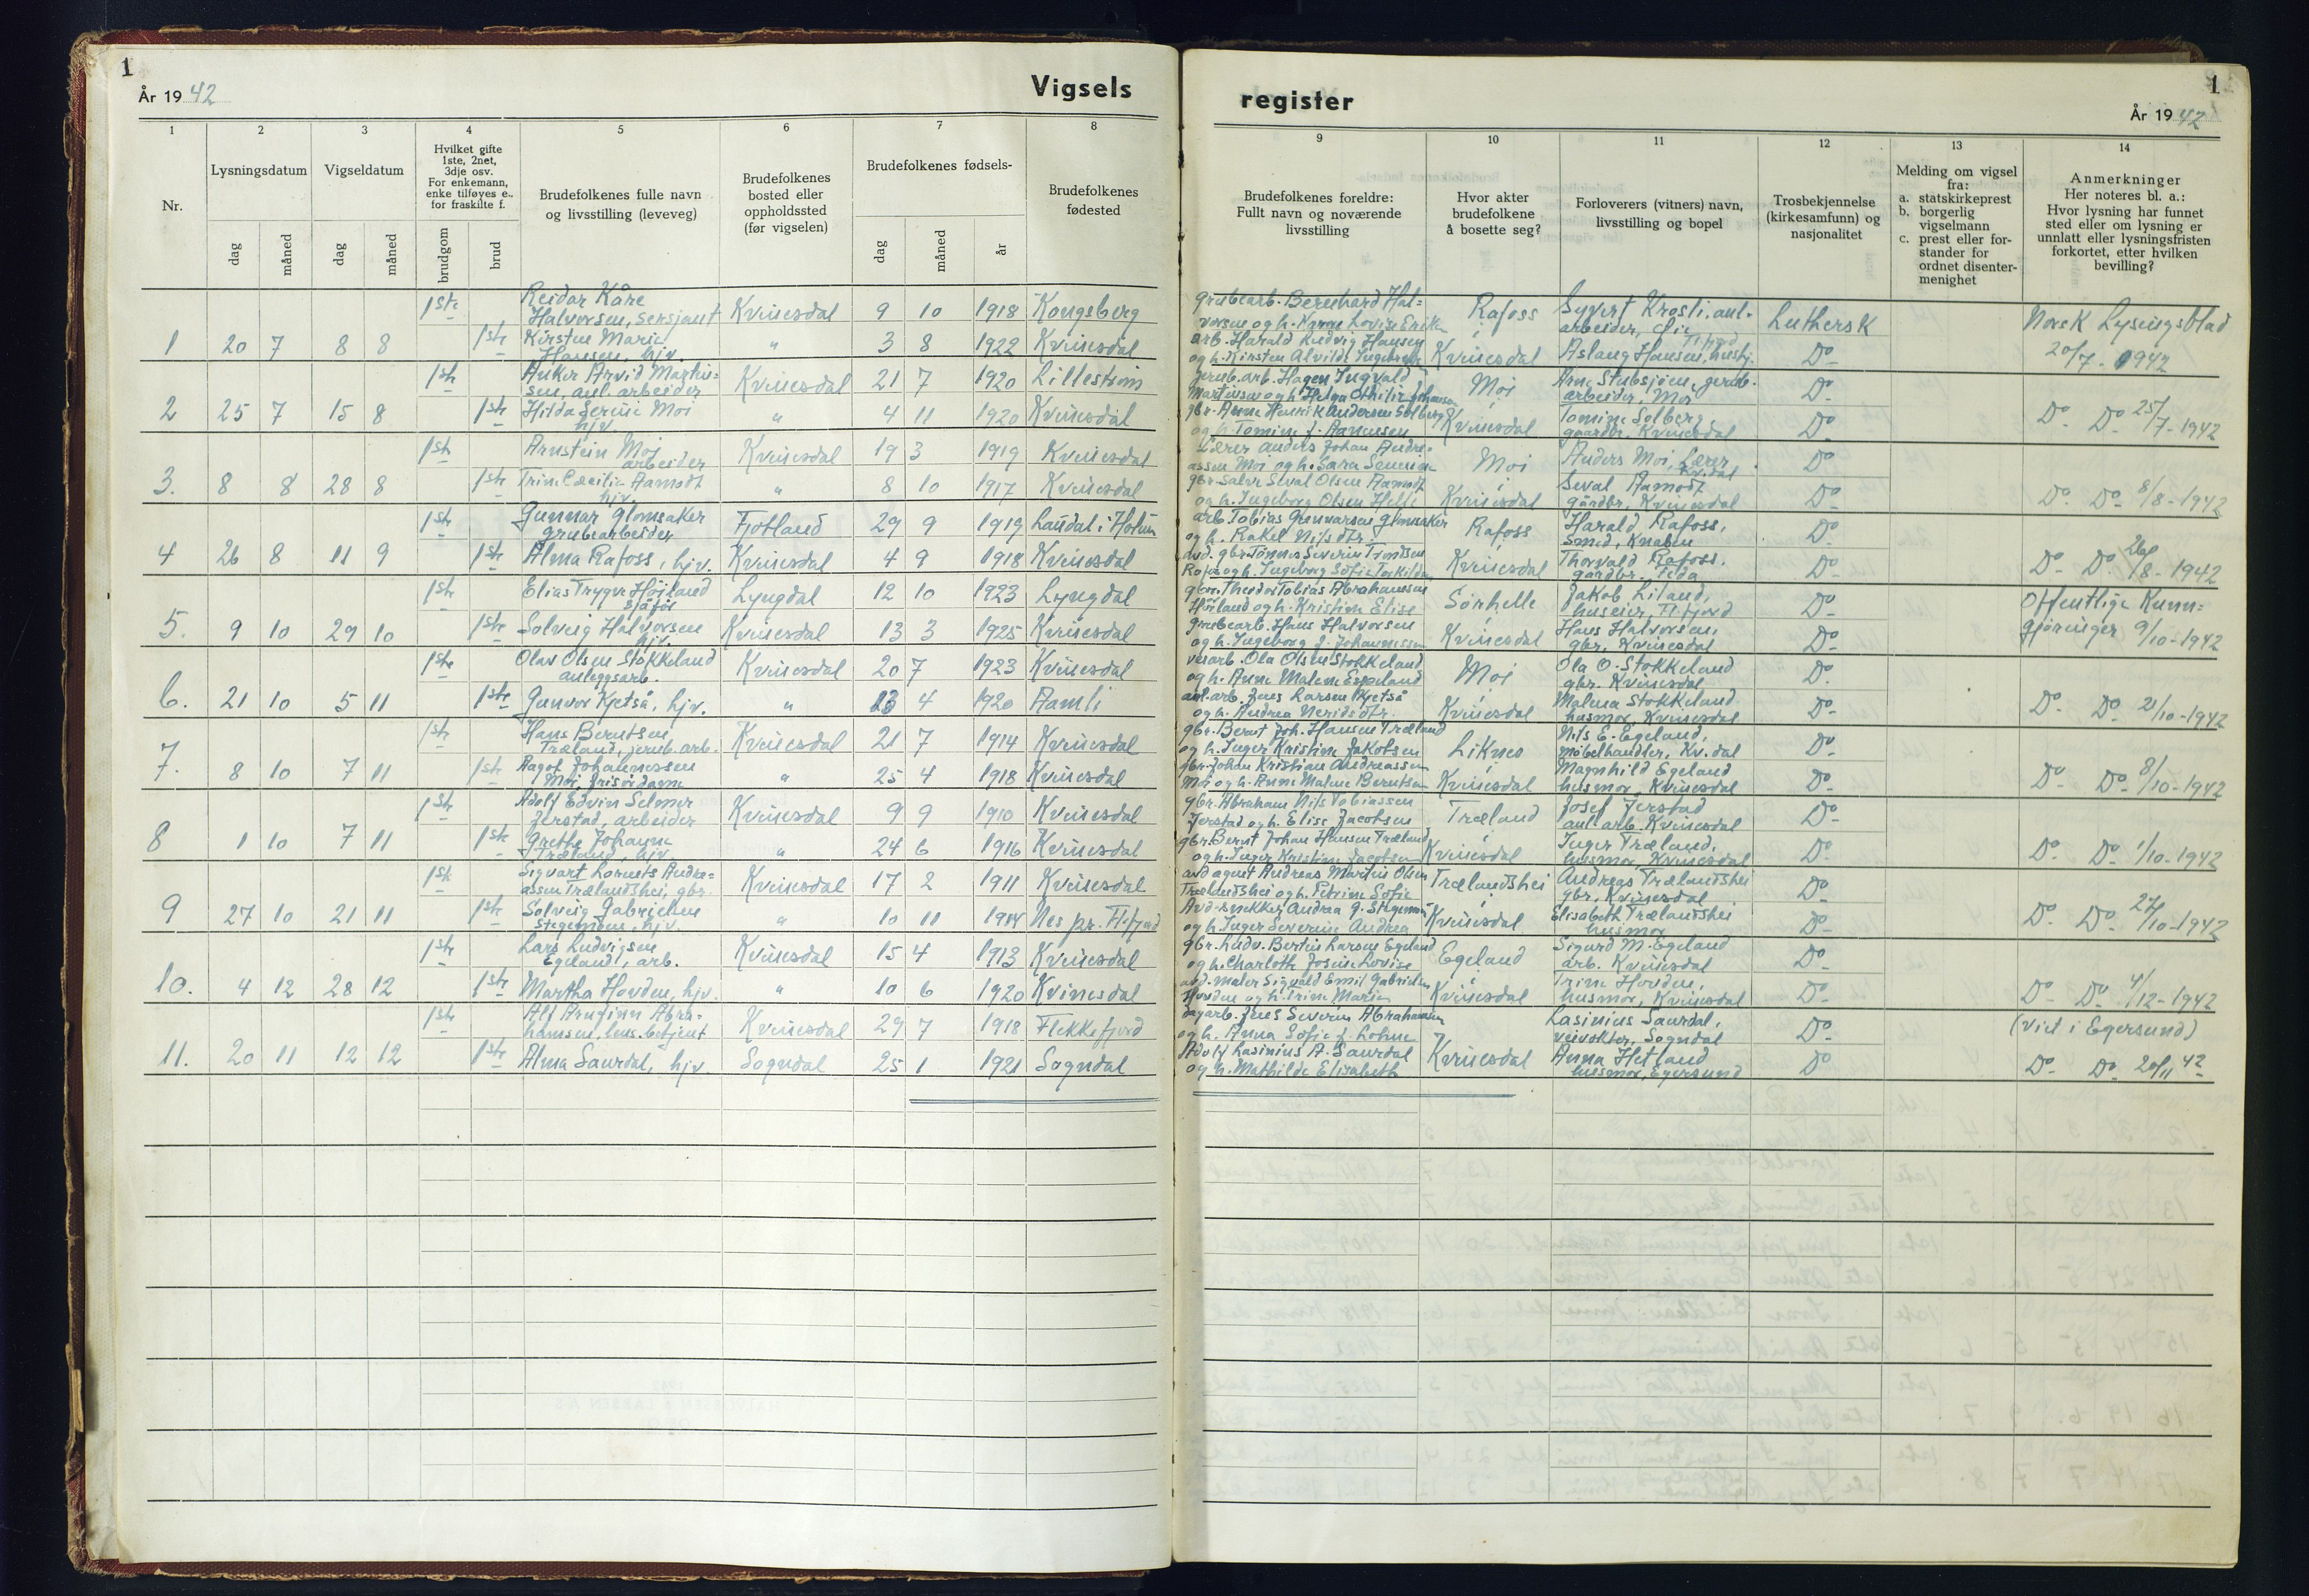 1
År 19 42
Vigsels
1 2 3 4 5 6 7 8
Nr.
Lysningsdatum
Vigseldatum
Hvilket gifte
1ste, 2net,
3dje osv.
For enkemann,
enke tilføyes e.,
for fraskilte f.
Brudefolkenes fulle navn
og livsstilling (leveveg)
Brudefolkenes
bosted eller
oppholdssted
(før vigselen)
Brudefolkenes fødsels-
Brudefolkenes
fødested
dag måned dag måned brudgom brud dag måned år
1ste Reidar Kåre
Halvorsen, sersjant Kvinesdal 9 10 1918 Kongsberg
1 20 7 8 8 1ste Kirsten Marie
Hansen, hjv. " 3 8 1922 Kvinesdal
1ste Anker Arvid Martin=
sen, anl. arbeider Kvinesdal 21 7 1920 Lillestrøm
2 25 7 15 8 1ste Hilda Serine Moi
hjv. " 4 11 1920 Kvinesdal
1ste Arnstein Moi
arbeider Kvinesdal 19 3 1919 Kvinesdal
3. 8 8 28 8 1ste Trine Cecilie Aamodt
hjv. " 8 10 1917 Kvinesdal
1ste Gunnar Glomsaker
grubearbeider Fjotland 29 9 1919 Laudal i Holum
4 26 8 11 9 1ste Alma Rafoss, hjv. Kvinesdal 4 9 1918 Kvinesdal
1ste Elias Trygve Höiland
sjåfør Lyngdal 12 10 1923 Lyngdal
5. 9 10 29 10 1ste Solveig Halvorsen
hjv. Kvinesdal 13 3 1925 Kvinesdal
1ste Olav Olsen Stokkeland
anleggsarb. Kvinesdal 20 7 1923 Kvinesdal
6. 21 10 5 11 1ste Gunvor Kjetså, hjv. " 4 1920 Aamli
1ste Hans Berntsen
Træland, jernb. arb. Kvinesdal 21 7 1914 Kvinesdal
7. 8 10 7 11 1ste Aagot Johannessen
Moi, frisørdame " 25 4 1918 Kvinesdal
1ste Adolf Edvin Selmer
Jerstad, arbeider Kvinesdal 9 9 1910 Kvinesdal
8 1 10 7 11 1ste Grethe Johanne
Træland, hjv. " 24 6 1916 Kvinesdal
1ste Sigvart Lorents Andre=
assen Trælandshei, gbr. Kvinesdal 17 2 1911 Kvinesdal
9 27 10 21 11 1ste Solveig Gabrielsen
Stegemoen, hjv. " 10 11 1914 Nes pr. Fl.fjord
1ste Lars Ludvigsen
Egeland, arb. Kvinesdal 15 4 1913 Kvinesdal
10. 4 12 28 12 1ste Martha Hovden, hjv. " 10 6 1920 Kvinesdal
1ste Alf Arnfinn Abra=
hamsen, lens. betjent Kvinesdal 29 7 1918 Flekkefjord
11. 20 11 12 12 1ste Alma Saurdal, hjv. Sogndal 25 1 1921 Sogndal
register
1
År 19 42
9 10 11 12 13 14
Brudefolkenes foreldre:
Fullt navn og noværende
livsstilling
Hvor akter
brudefolkene
å bosette seg?
Forloverers (vitners) navn,
livsstilling og bopel
Trosbekjennelse
(kirkesamfunn) og
nasjonalitet
Melding om vigsel
fra:
a. statskirkeprest
b. borgerlig
vigselmann
c. prest eller for-
stander for
ordnet disenter-
menighet
Anmerkninger
Her noteres bl. a.:
Hvor lysning har funnet
sted eller om lysning er
unnlatt eller lysningsfristen
forkortet, etter hvilken
bevilling?
grubearb. Bernhard Hal=
vorsen og h. Lovise Rafoss Syvert anl.
arbeider, Luthersk Norsk Lysingsblad
arb. Harald Ludvig Hansen
og h. Kirsten Alvilde Kvinesdal Aslaug Hansen, Do 20/7 - 1942
jernb. arb. Hagen Ingvald
Martinsen og h. Helga Othilie Johansen Moi Arne Stubsjøen, jernb.
arbeider, Moi Do
gbr. Henrik Andersen Solberg
og h. Tomine f. Aamensen Kvinesdal Tomine Solberg
gaardbr. Kvinesdal Do Do Do 25/7 - 1942
Lærer Anders Johan Andre=
assen Moi og h. Sara Moi Anders Moi, Lærer
Kv.dal Do
gbr. Seval Olsen Aamodt
og h. Ingeborg Olsen Kvinesdal Seval Aamodt
gårdbr. Kvinesdal Do Do Do 8/8 - 1942
arb. Tobias Gunnarsen Glomsaker
og h. Rakel Nilsdtr. Rafoss Harald Rafoss,
smed, Knaben Do
gbr. Tönnes Severin
og h. Ingeborg Sofie Kvinesdal Thorvald Rafoss,
gårdbr. Feda Do Do Do 26/8 - 1942
gbr. Theodor Tobias Abrahamsen
Höiland og h. Kristine Elise Sörhelle Jakob Liland,
huseier, Fl.fjord Do Offentlige Kunn=
grubearb. Hans Halvorsen
og h. Ingeborg f. Johannessen Kvinesdal Hans Halvorsen,
gbr. Kvinesdal Do gjöringer 9/10 - 1942
Ola Olsen Stokkeland
og h. Anne Malene Espeland Moi Ola O. Stokkeland
gbr. Kvinesdal Do
anl. arb. Jens Larsen Kjetså
og h. Andrea Kvinesdal Malena Stokkeland
husmor, Kvinesdal Do Do Do 21/10 - 1942
gbr. Bernt Joh. Hansen Træland
og h. Inger Kristine Jakobsen Liknes Nils E. Egeland,
möbelhandler, Kv.dal Do
gbr. Johan Kristian Andreassen
Moi og h. Anne Malene Berntsen Kvinesdal Magnhild Egeland
husmor, Kvinesdal Do Do Do 8/10 - 1942
gbr. Abraham Nils Tobiassen
Jerstad og h. Elise Jacobsen Træland Josef Jerstad
anl. arb. Kvinesdal Do
gbr. Bernt Johan Hansen Træland
og h. Inger Kristine Jacobsen Kvinesdal Inger Træland,
husmor, Kvinesdal Do Do Do 1/10 - 1942
agent Andreas Martin Olsen
Trælandshei og h. Petrine Sofie Trælandshei Andreas Trælandshei
gbr. Kvinesdal Do
Avd. snekker Andrea G. Stegemoen
og h. Inger Severine Andrea Kvinesdal Elisabeth Trælandshei
husmor Do Do Do 27/10 - 1942
gbr. Ludv. Bertin Larsen Egeland
og h. Charlothe Josine Lovise Egeland Sigurd M. Egeland
arb. Kvinesdal Do
avd. maler Sigvald Emil Gabrielsen
Hovden og h. Trine Marie Kvinesdal Trine Hovden,
husmor, Kvinesdal Do Do Do 4/12 - 1942
dagarb. Jens Severin Abrahamsen
og h. Anna Sofie f. Lohne Kvinesdal Lasinius Saurdal,
veivokter, Sogndal Do (Viet i Egersund)
Adolf Lasinius A. Saurdal
og h. Mathilde Elisabeth Anna Hetland
husmor, Egersund Do Do Do 20/11 42